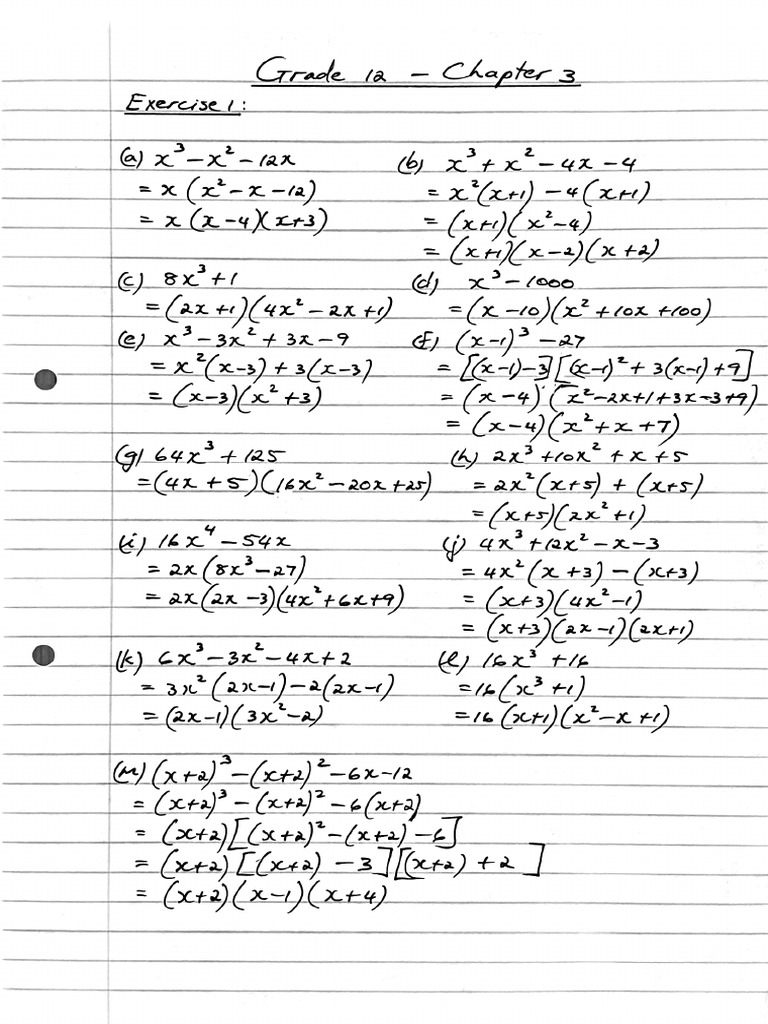 Grade 12 - Chapter 3
Exercise 1:
(a) x³ - x² - 12x
= x (x² - x - 12)
= x (x - 4)(x + 3)
(b) x³ + x² - 4x - 4
= x²(x+1) - 4(x+1)
= (x+1)(x² - 4)
= (x+1)(x-2)(x+2)
(c) 8x³ + 1
= (2x + 1)(4x² - 2x + 1)
(d) x³ - 1000
= (x - 10)(x² + 10x + 100)
(e) x³ - 3x² + 3x - 9
= x²(x-3) + 3(x-3)
= (x-3)(x² + 3)
(f) (x-1)³ - 27
= [(x-1)-3][(x-1)² + 3(x-1) + 9]
= (x-4)(x² - 2x + 1 + 3x - 3 + 9)
= (x-4)(x² + x + 7)
(g) 64x³ + 125
= (4x + 5)(16x² - 20x + 25)
(h) 2x³ + 10x² + x + 5
= 2x²(x+5) + (x+5)
= (x+5)(2x² + 1)
(i) 16x⁴ - 54x
= 2x(8x³ - 27)
= 2x(2x - 3)(4x² + 6x + 9)
(j) 4x³ + 12x² - x - 3
= 4x²(x + 3) - (x+3)
= (x+3)(4x² - 1)
= (x+3)(2x-1)(2x+1)
(k) 6x³ - 3x² - 4x + 2
= 3x²(2x-1) - 2(2x-1)
= (2x-1)(3x² - 2)
(l) 16x³ + 16
= 16(x³ + 1)
= 16(x+1)(x² - x + 1)
(m) (x+2)³ - (x+2)² - 6x - 12
= (x+2)³ - (x+2)² - 6(x+2)
= (x+2)[(x+2)² - (x+2) - 6]
= (x+2)[(x+2) - 3][(x+2) + 2]
= (x+2)(x-1)(x+4)